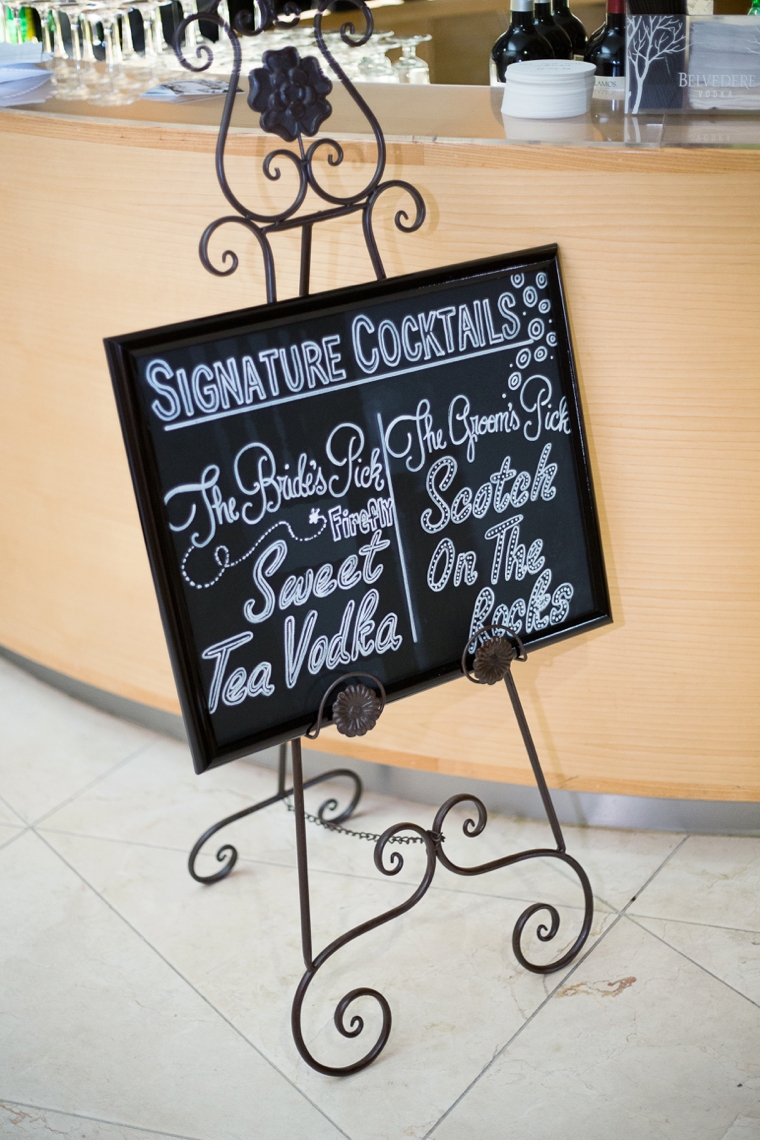 BELVEDERE
VODKA
SIGNATURE COCKTAILS
The Bride's Pick
Firefly
Sweet
Tea Vodka
The Groom's Pick
Scotch
On The
Rocks